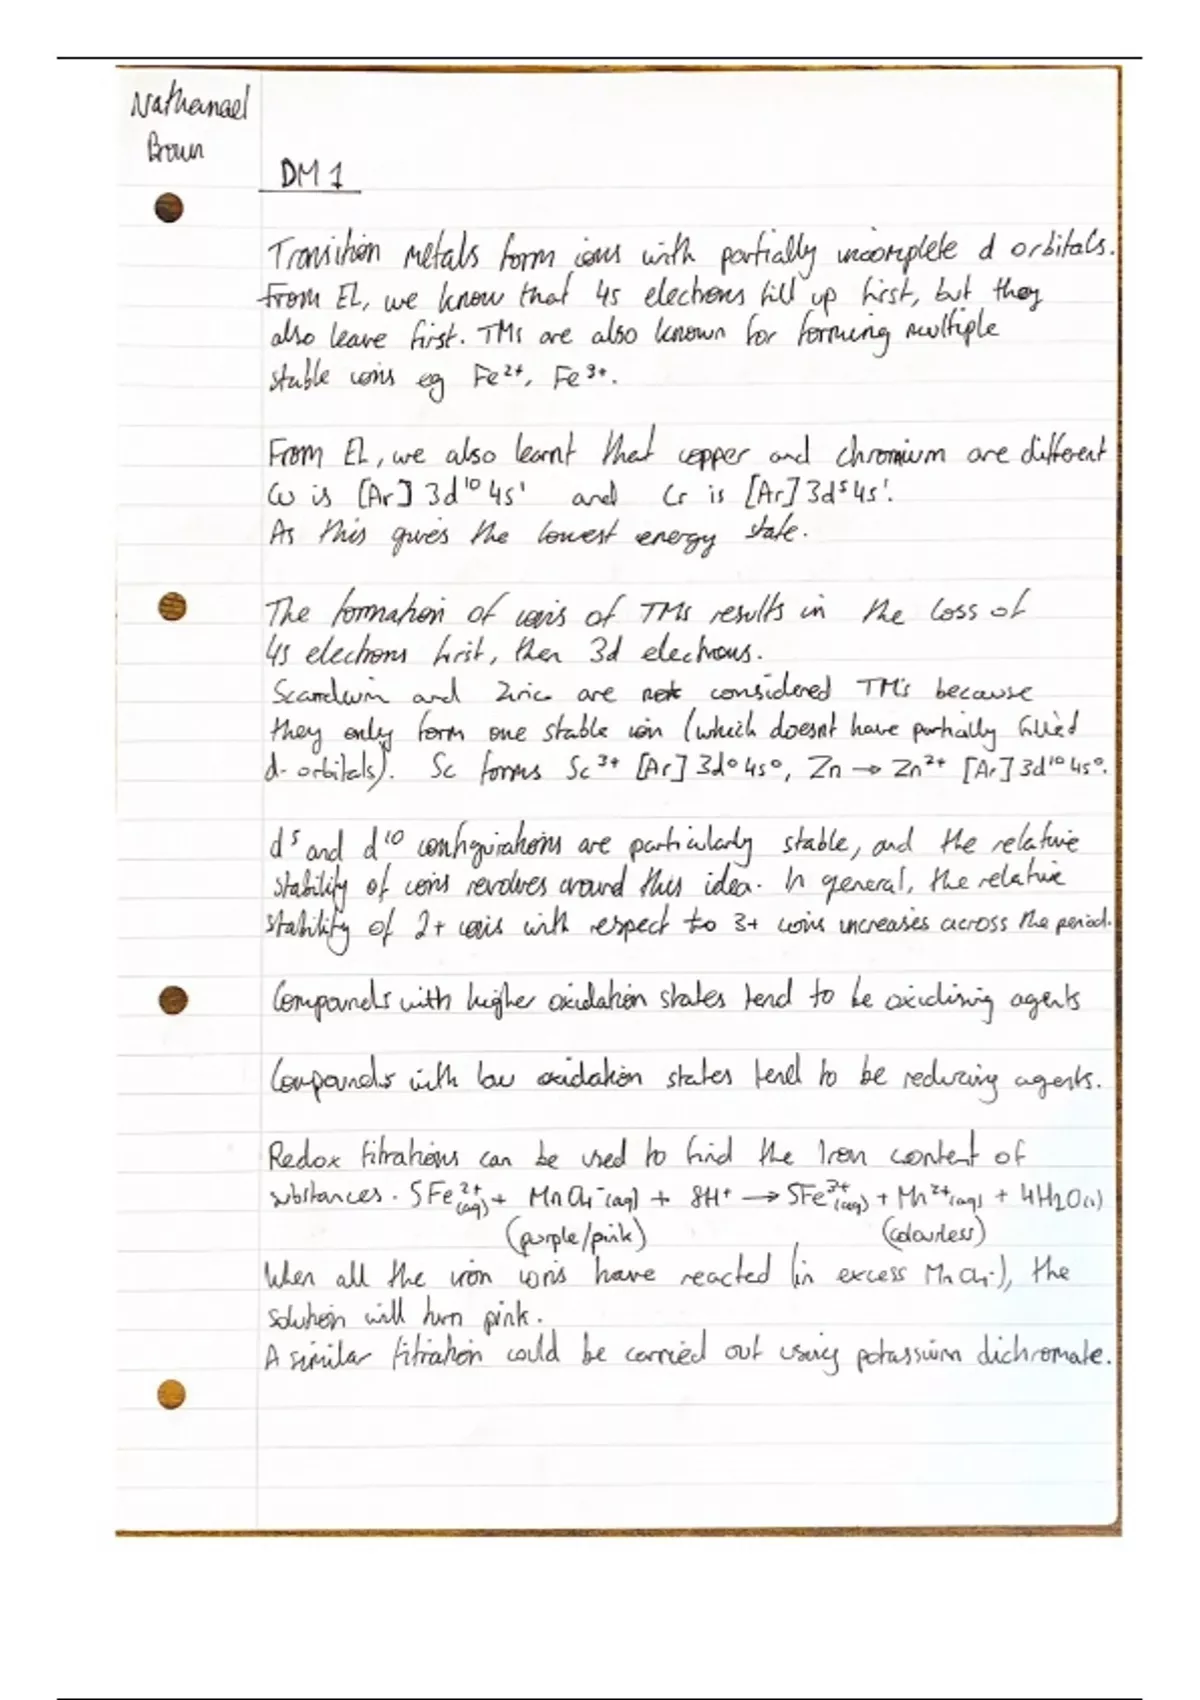 Nathanael
Brown
DM 1
Transition metals form ions with partially incomplete d orbitals.
From EL, we know that 4s electrons fill up first, but they
also leave first. TMs are also known for forming multiple
stable ions eg Fe²⁺, Fe³⁺.
From EL, we also learnt that copper and chromium are different
Cu is [Ar] 3d¹⁰ 4s¹ and Cr is [Ar] 3d⁵ 4s¹.
As this gives the lowest energy state.
The formation of ions of TMs results in the loss of
4s electrons first, then 3d electrons.
Scandium and Zinc are not considered TM's because
they only form one stable ion (which doesnt have partially filled
d-orbitals). Sc forms Sc³⁺ [Ar] 3d⁰ 4s⁰, Zn → Zn²⁺ [Ar] 3d¹⁰ 4s⁰.
d⁵ and d¹⁰ configurations are particularly stable, and the relative
stability of ions revolves around this idea. In general, the relative
stability of 2+ ions with respect to 3+ ions increases across the period.
Compounds with higher oxidation states tend to be oxidising agents
Compounds with low oxidation states tend to be reducing agents.
Redox titrations can be used to find the Iron content of
substances. 5Fe²⁺(aq) + MnO₄⁻(aq) + 8H⁺ → 5Fe³⁺(aq) + Mn²⁺(aq) + 4H₂O(l)
(purple/pink) (colourless)
When all the iron ions have reacted (in excess MnO₄⁻), the
solution will turn pink.
A similar titration could be carried out using potassium dichromate.